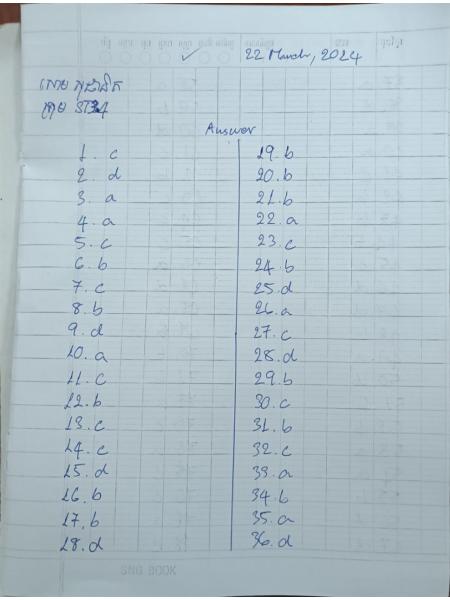 22 March, 2024
ក្រុម ST34
Answer
1. c
2. d
3. a
4. a
5. c
6. b
7. c
8. b
9. d
10. a
11. c
12. b
13. c
14. c
15. d
16. b
17. b
18. d
19. b
20. b
21. b
22. a
23. c
24. b
25. d
26. a
27. c
28. d
29. b
30. c
31. b
32. c
33. a
34. b
35. a
36. d
SNG BOOK